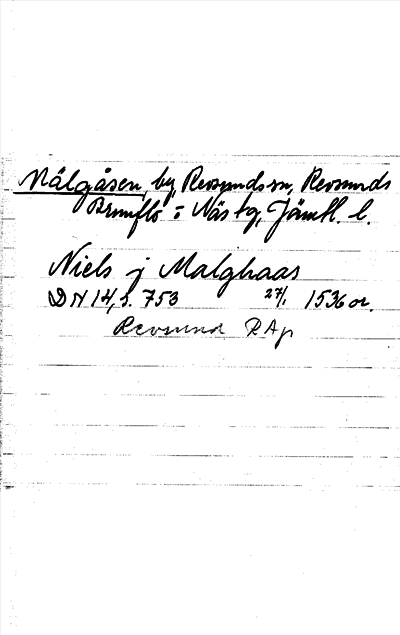 Målgåsen, by, Revsunds sn, Revsunds
Brunflo o. Näs tg, Jämtl. l.
Niels j Malghaas
DN 14, s. 753 27/1 1536 or.
Revsund RAp